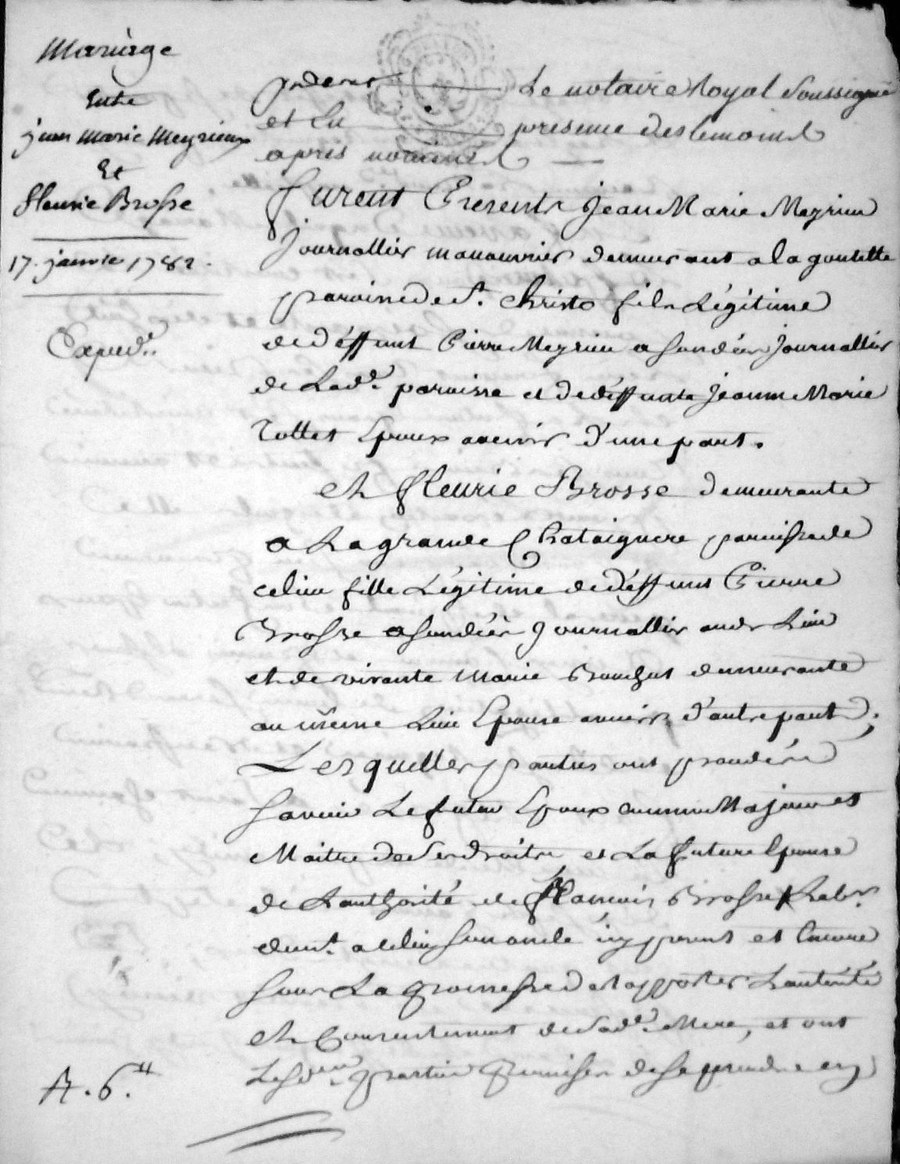 Mariage
Entre
jean Marie Meyrieux
Et
fleurie Brosse
17. janvier 1782.
Expedié.
pardevant Le notaire Royal Soussigné
et En presence des temoins
apres nommés
furent Presents jean Marie Meyrieu
journallier manouvrier demeurant a la goutette
paroisse de st. Christo fils Légitime
de deffunt Pierre Meyrieu a son décès journallier
de Lade. paroisse et de deffunte jeanne Marie
Epoux avenir d'une part.
et fleurie Brosse demeurante
a La grande Chataignere paroisse de
celieu fille Légitime de deffunt Pierre
Brosse a son décès journallier aud. Lieu
et de vivante Marie demeurante
au même Lieu Epouse avenir d'autre part;
Lesquelles parties ont procédé
Savoir Le futur Epoux comme Majeur et
Maitre de Ses droits et La future Epouse
de Lauthorité de françois Brosse Labr.
demt. a celieu son oncle icy present et Encore
Sous La promesse de rapporter Lauthorité
et Consentement de Sade. Mere, et ont
Lesdites parties promises de se prendre en
A. 6.tt